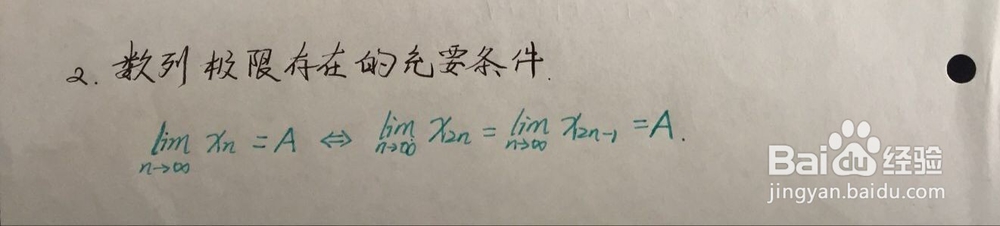 2. 数列极限存在的充要条件.
lim n→∞ xn = A ⇔ lim n→∞ x2n = lim n→∞ x2n-1 = A.
Baidu经验
jingyan.baidu.com